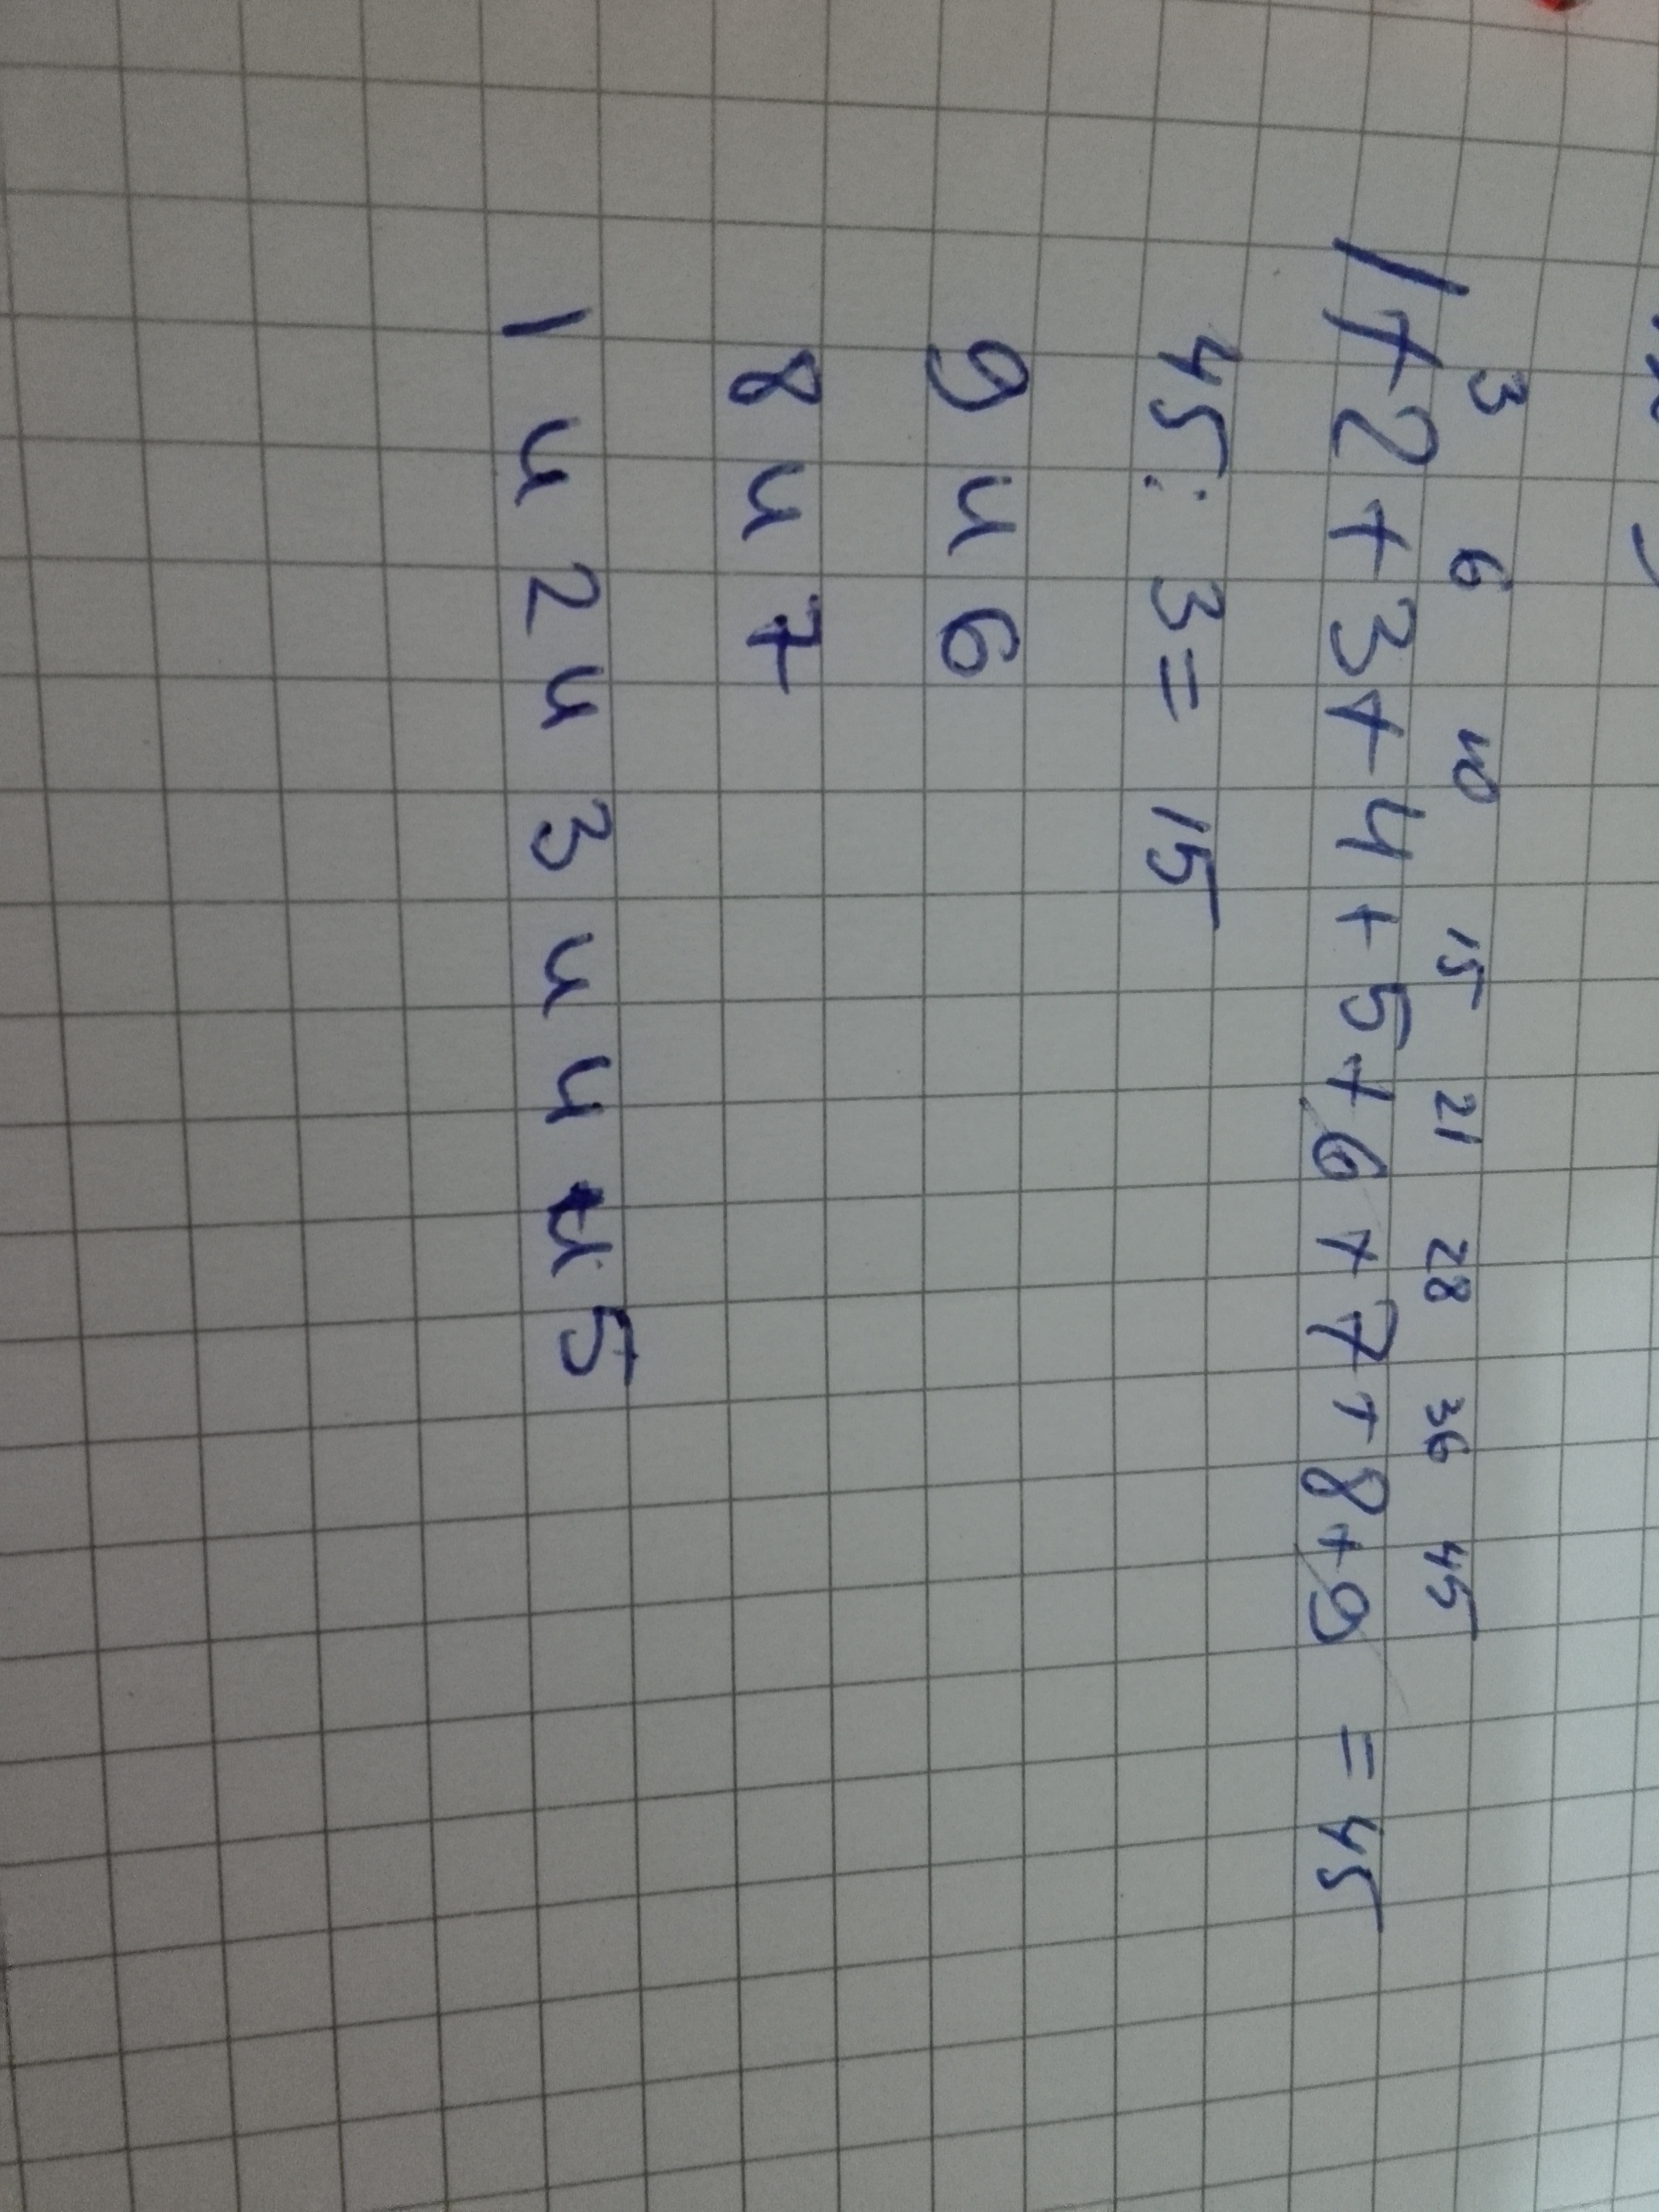 3 6 10 15 21 28 36 45
1+2+3+4+5+6+7+8+9 = 45
45:3=15
9 и 6
8 и 7
1 и 2 и 3 и 4 и 5